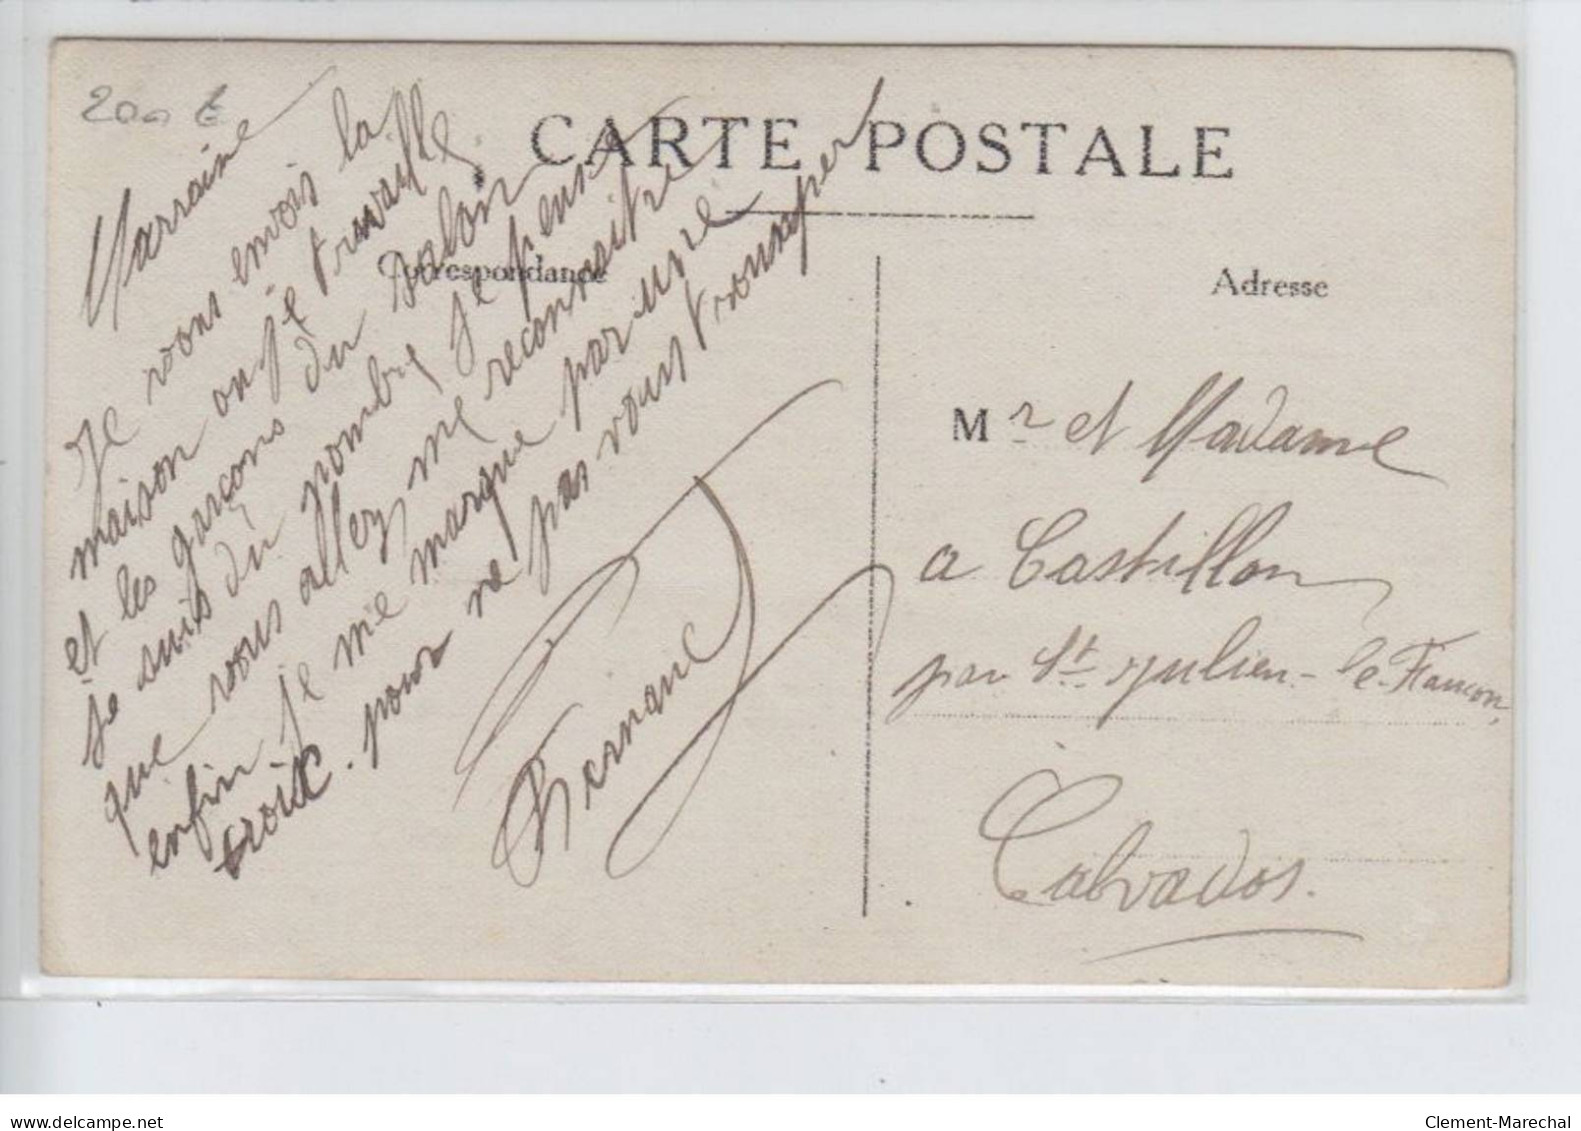 CARTE POSTALE
Correspondance
Adresse
Marraine
Je vous envois la
maison ou je travaille
et les garçons du salon
je suis du nombre je pense
que vous allez me reconnaitre
enfin je me marque par une
croix. pour ne pas vous tromper
Fernand
Mr et Madame
a Castillon
par St Julien-le-Faucon,
Calvados.
www.delcampe.net
Clement-Marechal